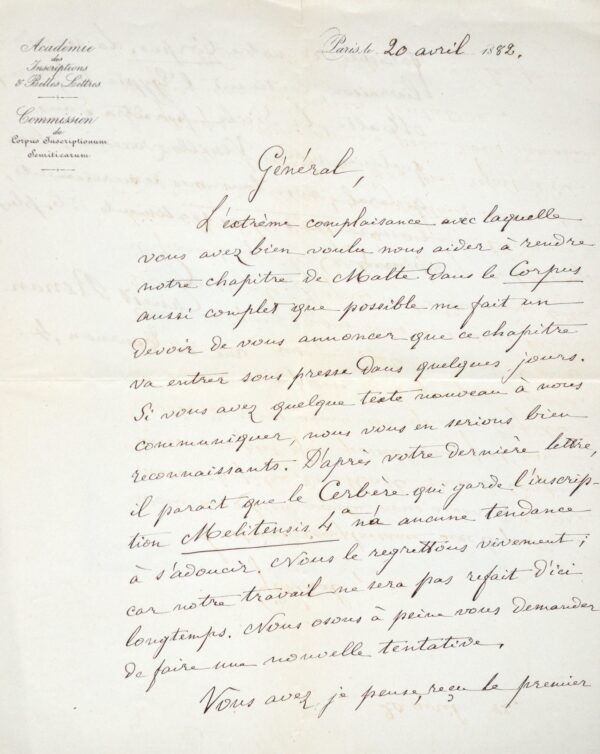 Académie
des
Inscriptions
& Belles Lettres
Commission
du
Corpus Inscriptionum
Semiticarum
Paris, le 20 avril 1882.
Général,
L'extrème complaisance avec laquelle
vous avez bien voulu nous aider à rendre
notre chapitre de Malte dans le Corpus
aussi complet que possible me fait un
devoir de vous annoncer que ce chapitre
va entrer sous presse dans quelques jours.
Si vous avez quelque texte nouveau à nous
communiquer, nous vous en serions bien
reconnaissants. D'après votre dernière lettre,
il paraît que le Cerbère qui garde l'inscrip-
tion Melitensis 4a n'a aucune tendance
à s'adoucir. Nous le regrettons vivement ;
car notre travail ne sera pas refait d'ici
longtemps. Nous osons à peine vous demander
de faire une nouvelle tentative.
Vous avez, je pense, reçu le premier